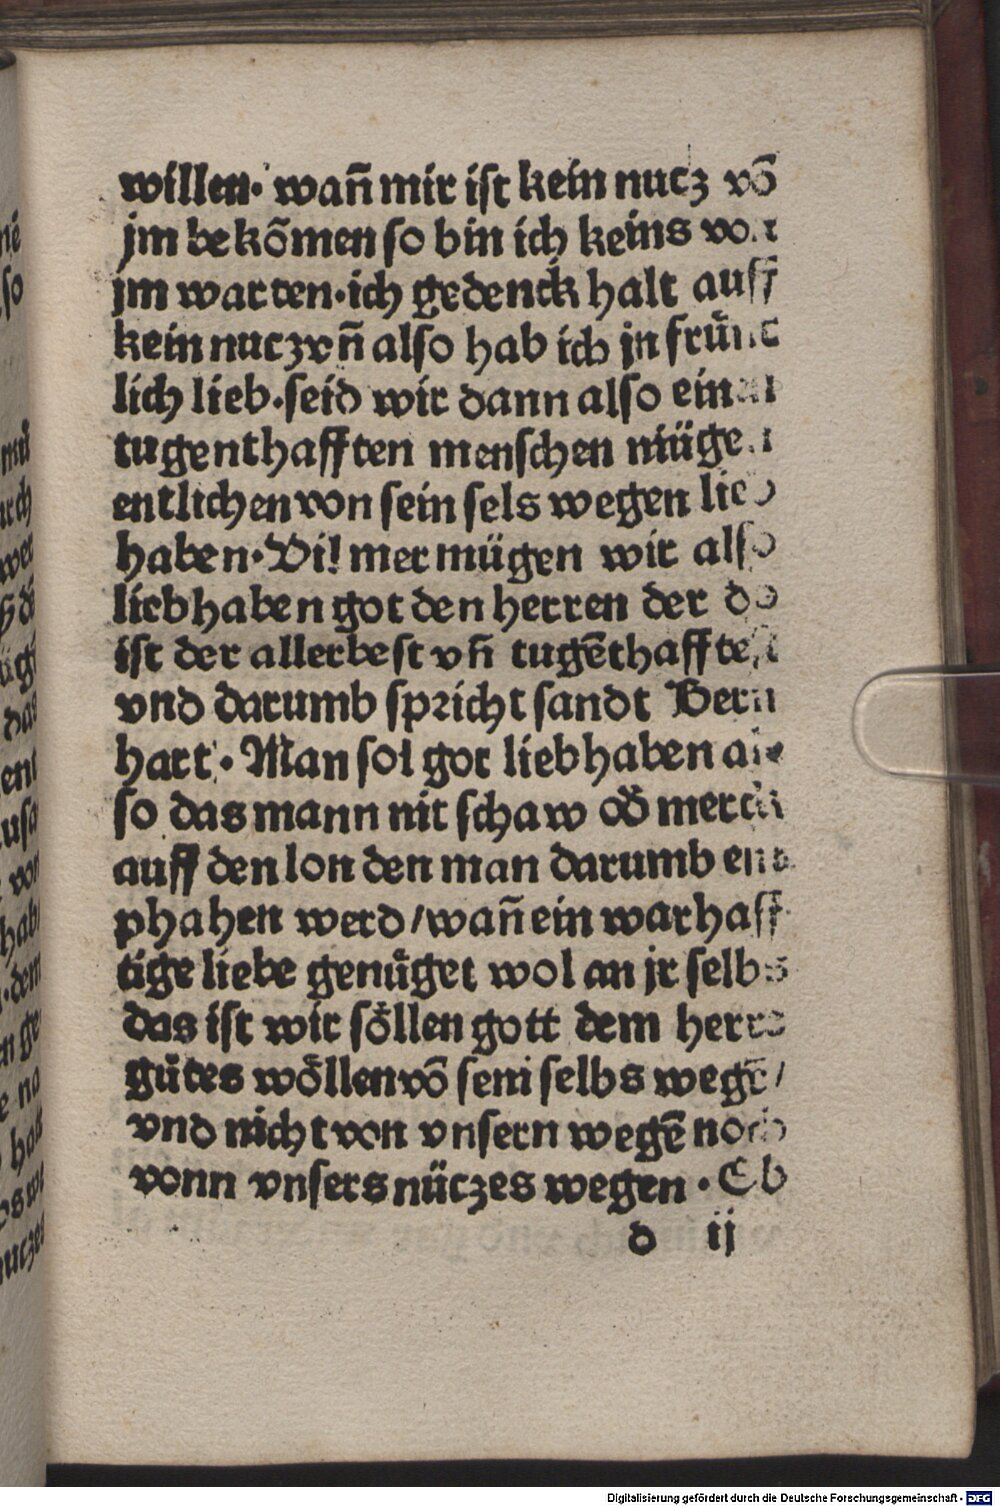 willen· wañ mir ist kein nucz võ
jm bekõmen so bin ich keins von
jm warten·ich gedenck halt auff
kein nucz vñ also hab ich jn frünt
lich lieb·seid wir dann also ein
tugenthafften menschen mügen
entlichen von sein sels wegen lieb
haben·Vil mer mügen wir also
lieb haben got den herren der do
ist der allerbest vñ tugēthafftest
vnd darumb spricht sandt Bern
hart·Man sol got lieb haben al
so das mann nit schaw oď merck
auff den lon den man darumb en
phahen werd/wañ ein warhaff
tige liebe genüget wol an jr selbs
das ist wir söllen gott dem herrē
gůtes wöllen võ seni selbs wegē/
vnd nicht von vnsern wegē noch
vonn vnsers nüczes wegen·Eb
d ij
Digitalisierung gefördert durch die Deutsche Forschungsgemeinschaft · DFG